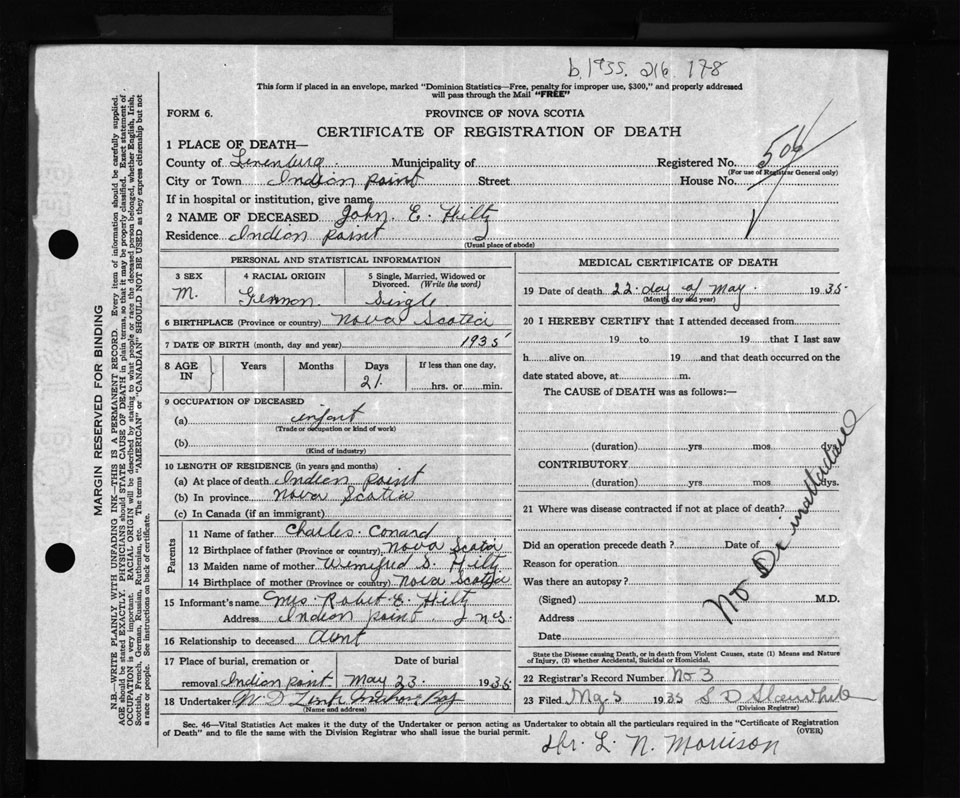 b. 1935. 216. 178
This form if placed in an envelope, marked "Dominion Statistics—Free, penalty for improper use, $300," and properly addressed
will pass through the Mail "FREE"
FORM 6.
PROVINCE OF NOVA SCOTIA
CERTIFICATE OF REGISTRATION OF DEATH
1 PLACE OF DEATH—
County of Lunenburg. Municipality of Registered No. 506
(For use of Registrar General only)
City or Town Indian Point Street House No.
If in hospital or institution, give name
2 NAME OF DECEASED John. E. Hiltz
Residence Indian Point
(Usual place of abode)
PERSONAL AND STATISTICAL INFORMATION
3 SEX 4 RACIAL ORIGIN 5 Single, Married, Widowed or Divorced. (Write the word)
M. German. Single
6 BIRTHPLACE (Province or country) Nova Scotia
7 DATE OF BIRTH (month, day and year) 1935
8 AGE IN Years Months Days If less than one day,
21. hrs. or min.
9 OCCUPATION OF DECEASED
(a) infant
(Trade or occupation or kind of work)
(b)
(Kind of industry)
10 LENGTH OF RESIDENCE (in years and months)
(a) At place of death Indian Point
(b) In province Nova Scotia
(c) In Canada (if an immigrant)
Parents
11 Name of father Charles. Conard
12 Birthplace of father (Province or country) Nova Scotia
13 Maiden name of mother Winifred S. Hiltz
14 Birthplace of mother (Province or country) Nova Scotia
15 Informant's name Mrs. Robert E. Hiltz
Address Indian Point N S.
16 Relationship to deceased Aunt
17 Place of burial, cremation or removal Indian Point Date of burial May 23. 1935
18 Undertaker
(Name and address)
MEDICAL CERTIFICATE OF DEATH
19 Date of death 22. day of May. 1935
(Month, day and year)
20 I HEREBY CERTIFY that I attended deceased from
19 to 19 that I last saw
h alive on 19 and that death occurred on the
date stated above, at m.
The CAUSE of DEATH was as follows:—
(duration) yrs mos dys.
CONTRIBUTORY
(duration) yrs mos dys.
21 Where was disease contracted if not at place of death?
Did an operation precede death? Date of
Reason for operation
Was there an autopsy?
(Signed) M.D.
Address
Date
No Dr in attendance
State the Disease causing Death, or in death from Violent Causes, state (1) Means and Nature of Injury, (2) whether Accidental, Suicidal or Homicidal.
22 Registrar's Record Number No 3
23 Filed 1935
(Division Registrar)
Sec. 46—Vital Statistics Act makes it the duty of the Undertaker or person acting as Undertaker to obtain all the particulars required in the "Certificate of Registration
of Death" and to file the same with the Division Registrar who shall issue the burial permit.
(OVER)
Dr. L. N. Morrison
MARGIN RESERVED FOR BINDING
N.B.—WRITE PLAINLY WITH UNFADING INK—THIS IS A PERMANENT RECORD. Every item of information should be carefully supplied.
AGE should be stated EXACTLY. PHYSICIANS should STATE CAUSE OF DEATH in plain terms, so that it may be properly classified. Exact statement of
OCCUPATION is very important. RACIAL ORIGIN will be described by stating to what people or race the deceased person belonged, whether English, Irish,
Scottish, French, German, Russian, Ruthenian, etc. The terms "AMERICAN" or "CANADIAN" SHOULD NOT BE USED as they express citizenship but not
a race or people. See instructions on back of certificate.